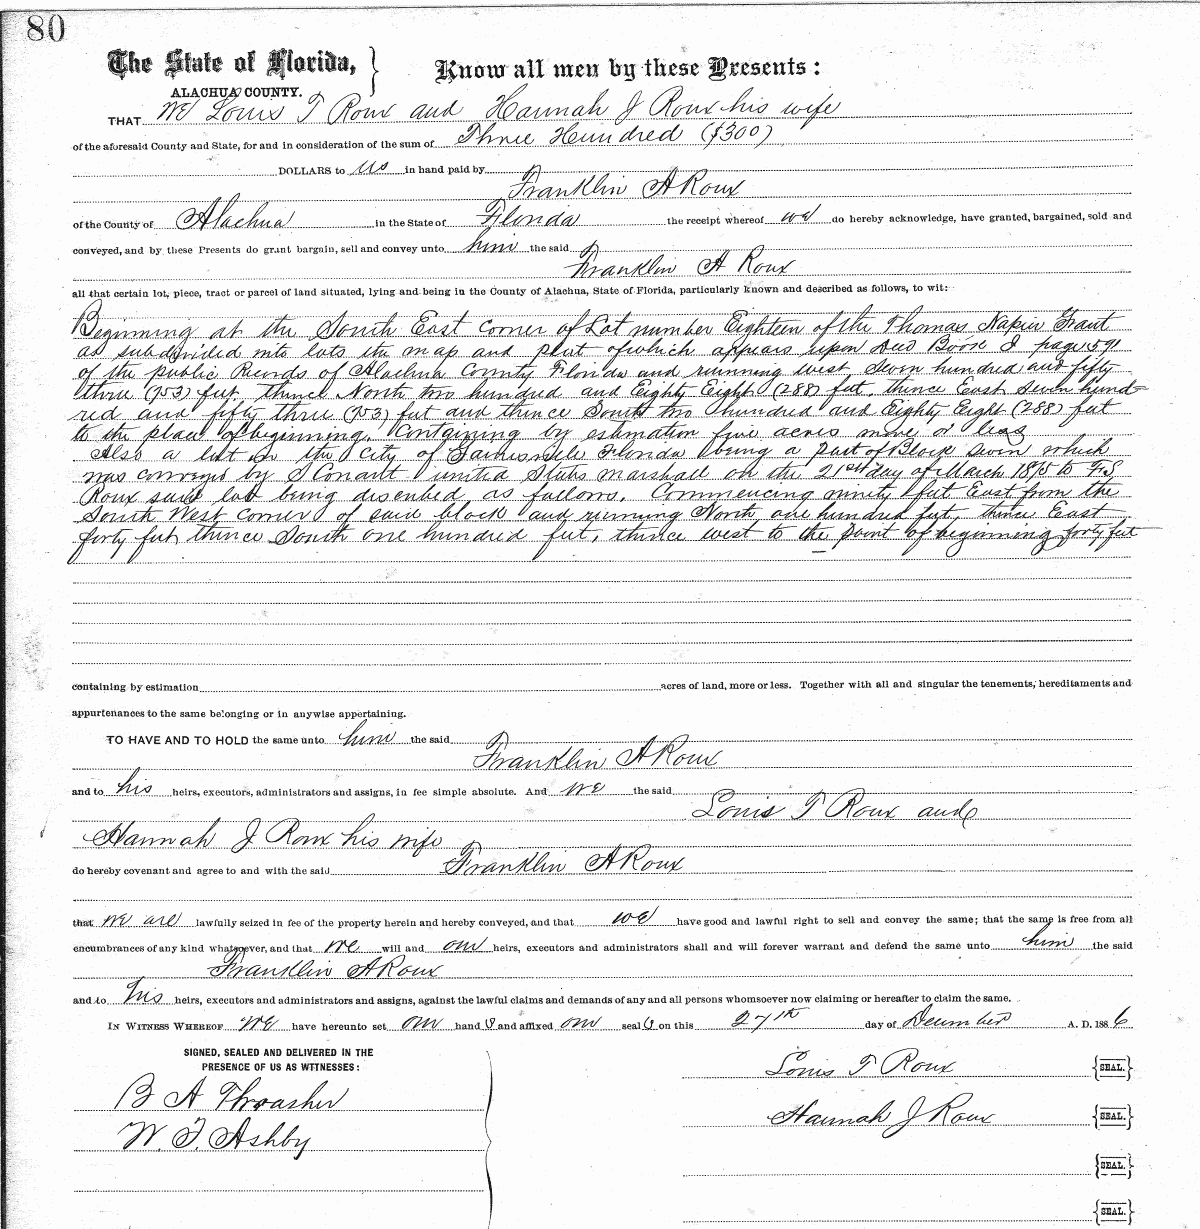 80
The State of Florida,
ALACHUA COUNTY.
Know all men by these Presents:
THAT We Louis T Roux and Hannah J Roux his wife
of the aforesaid County and State, for and in consideration of the sum of Three Hundred ($300)
DOLLARS to us in hand paid by
Franklin A Roux
of the County of Alachua in the State of Florida the receipt whereof we do hereby acknowledge, have granted, bargained, sold and
conveyed, and by these Presents do grant bargain, sell and convey unto him the said
Franklin A Roux
all that certain lot, piece, tract or parcel of land situated, lying and being in the County of Alachua, State of Florida, particularly known and described as follows, to wit:
Beginning at the South East corner of Lot number Eighteen of the Thomas Napier Grant
as subdivided into lots the map and plat of which appears upon Deed Book I page 591
of the public Records of Alachua County Florida and running west Seven hundred and fifty
three (753) feet, thence North two hundred and Eighty Eight (288) feet, thence East seven hund=
red and fifty three (753) feet and thence South two hundred and Eighty Eight (288) feet
to the place of beginning. Containing by estimation five acres more or less
Also a lot in the City of Gainesville Florida being a part of Block seven which
was conveyed by S Conant united States marshall on the 21st day of March 1875 to F S
Roux said lot being described as follows. Commencing ninety feet East from the
South West corner of said block and running North one hundred feet, thence East
forty feet thence South one hundred feet, thence west to the point of beginning forty feet
containing by estimation acres of land, more or less. Together with all and singular the tenements, hereditaments and
appurtenances to the same belonging or in anywise appertaining.
TO HAVE AND TO HOLD the same unto him the said
Franklin A Roux
and to his heirs, executors, administrators and assigns, in fee simple absolute. And we the said
Louis T Roux and
Hannah J Roux his wife
do hereby covenant and agree to and with the said Franklin A Roux
that we are lawfully seized in fee of the property herein and hereby conveyed, and that we have good and lawful right to sell and convey the same; that the same is free from all
encumbrances of any kind whatsoever, and that we will and our heirs, executors and administrators shall and will forever warrant and defend the same unto him the said
Franklin A Roux
and to his heirs, executors and administrators and assigns, against the lawful claims and demands of any and all persons whomsoever now claiming or hereafter to claim the same.
IN WITNESS WHEREOF we have hereunto set our hand s and affixed our seal s on this 27th day of December A. D. 1886
SIGNED, SEALED AND DELIVERED IN THE
PRESENCE OF US AS WITNESSES:
B A Thrasher
W. F. Ashby
Louis T Roux SEAL.
Hannah J Roux SEAL.
SEAL.
SEAL.